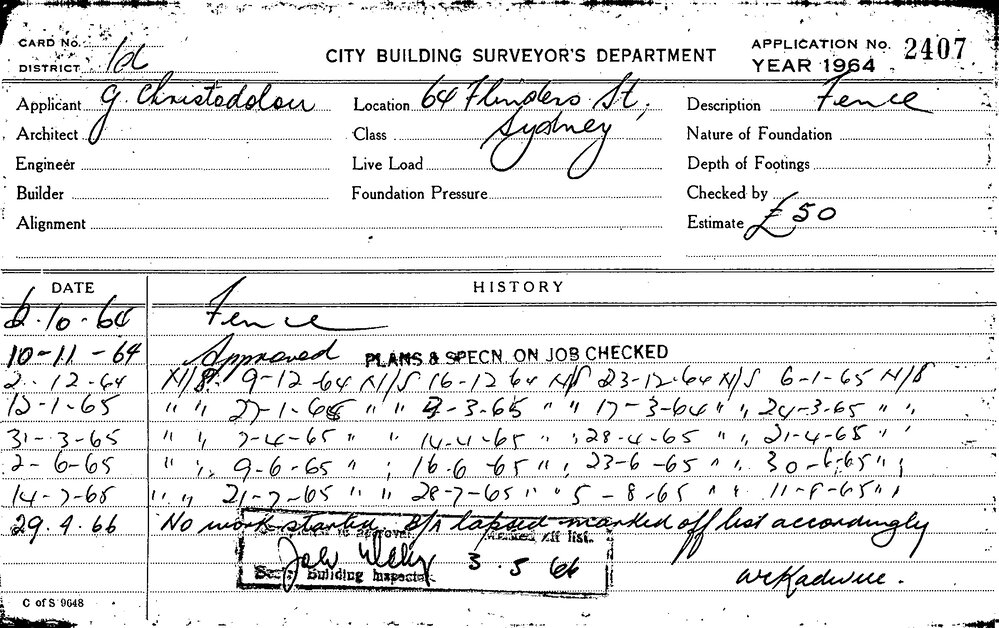 CARD No.
DISTRICT 1d
CITY BUILDING SURVEYOR'S DEPARTMENT
APPLICATION No. 2407
YEAR 1964
Applicant G. Christodolou Location 64 Flinders St, Description Fence
Architect Class Sydney Nature of Foundation
Engineer Live Load Depth of Footings
Builder Foundation Pressure Checked by
Alignment Estimate £50
DATE HISTORY
2.10.64 Fence
10-11-64 Approved PLANS & SPECN. ON JOB CHECKED
2-12-64 N/S 9-12-64 N/S 16-12 64 N/S 23-12-64 N/S 6-1-65 N/S
12-1-65 " " 27-1-65 " " 2-3-65 " " 17-3-64 " " 24-3-65 " "
31-3-65 " " 7-4-65 " " 14-4-65 " " 28-4-65 " " 21-4-65 " "
2-6-65 " " 9-6-65 " " 16-6-65 " " 23-6-65 " " 30-6-65 " "
14-7-65 " " 21-7-65 " " 28-7-65 " " 5-8-65 " " 11-8-65 " "
29.4.66 No work started. B/A lapsed marked off list accordingly
approval. Marked off list.
3.5 66
Building Inspector
C of S 9648